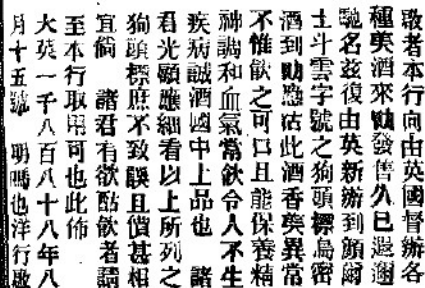 啟者本行向由英國督辦各
種美酒來叻發售久已遐邇
馳名茲復由英新辦到顏爾
士斗雲字號之狗頭標烏密
酒到叻懇沽此酒香美異常
不惟飲之可口且能保養精
神調和血氣常飲令人不生
疾病誠酒國中上品也 諸
君光顧應細看以上所列之
狗頭標庶不致誤且價甚相
宜倘 諸君有欲點飲者請
至本行取用可也此佈
大英一千八百八十八年八
月十五號 明嗎也洋行啟